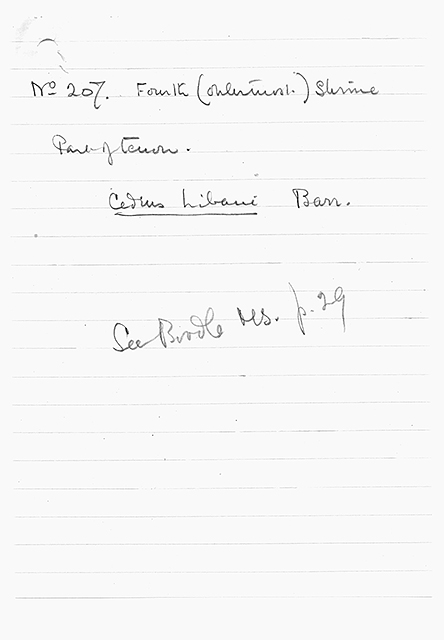 No 207. Fourth (outermost.) Shrine
Part of tenon.
Cedrus Libani Barr.
See Boodle MS. p. 29